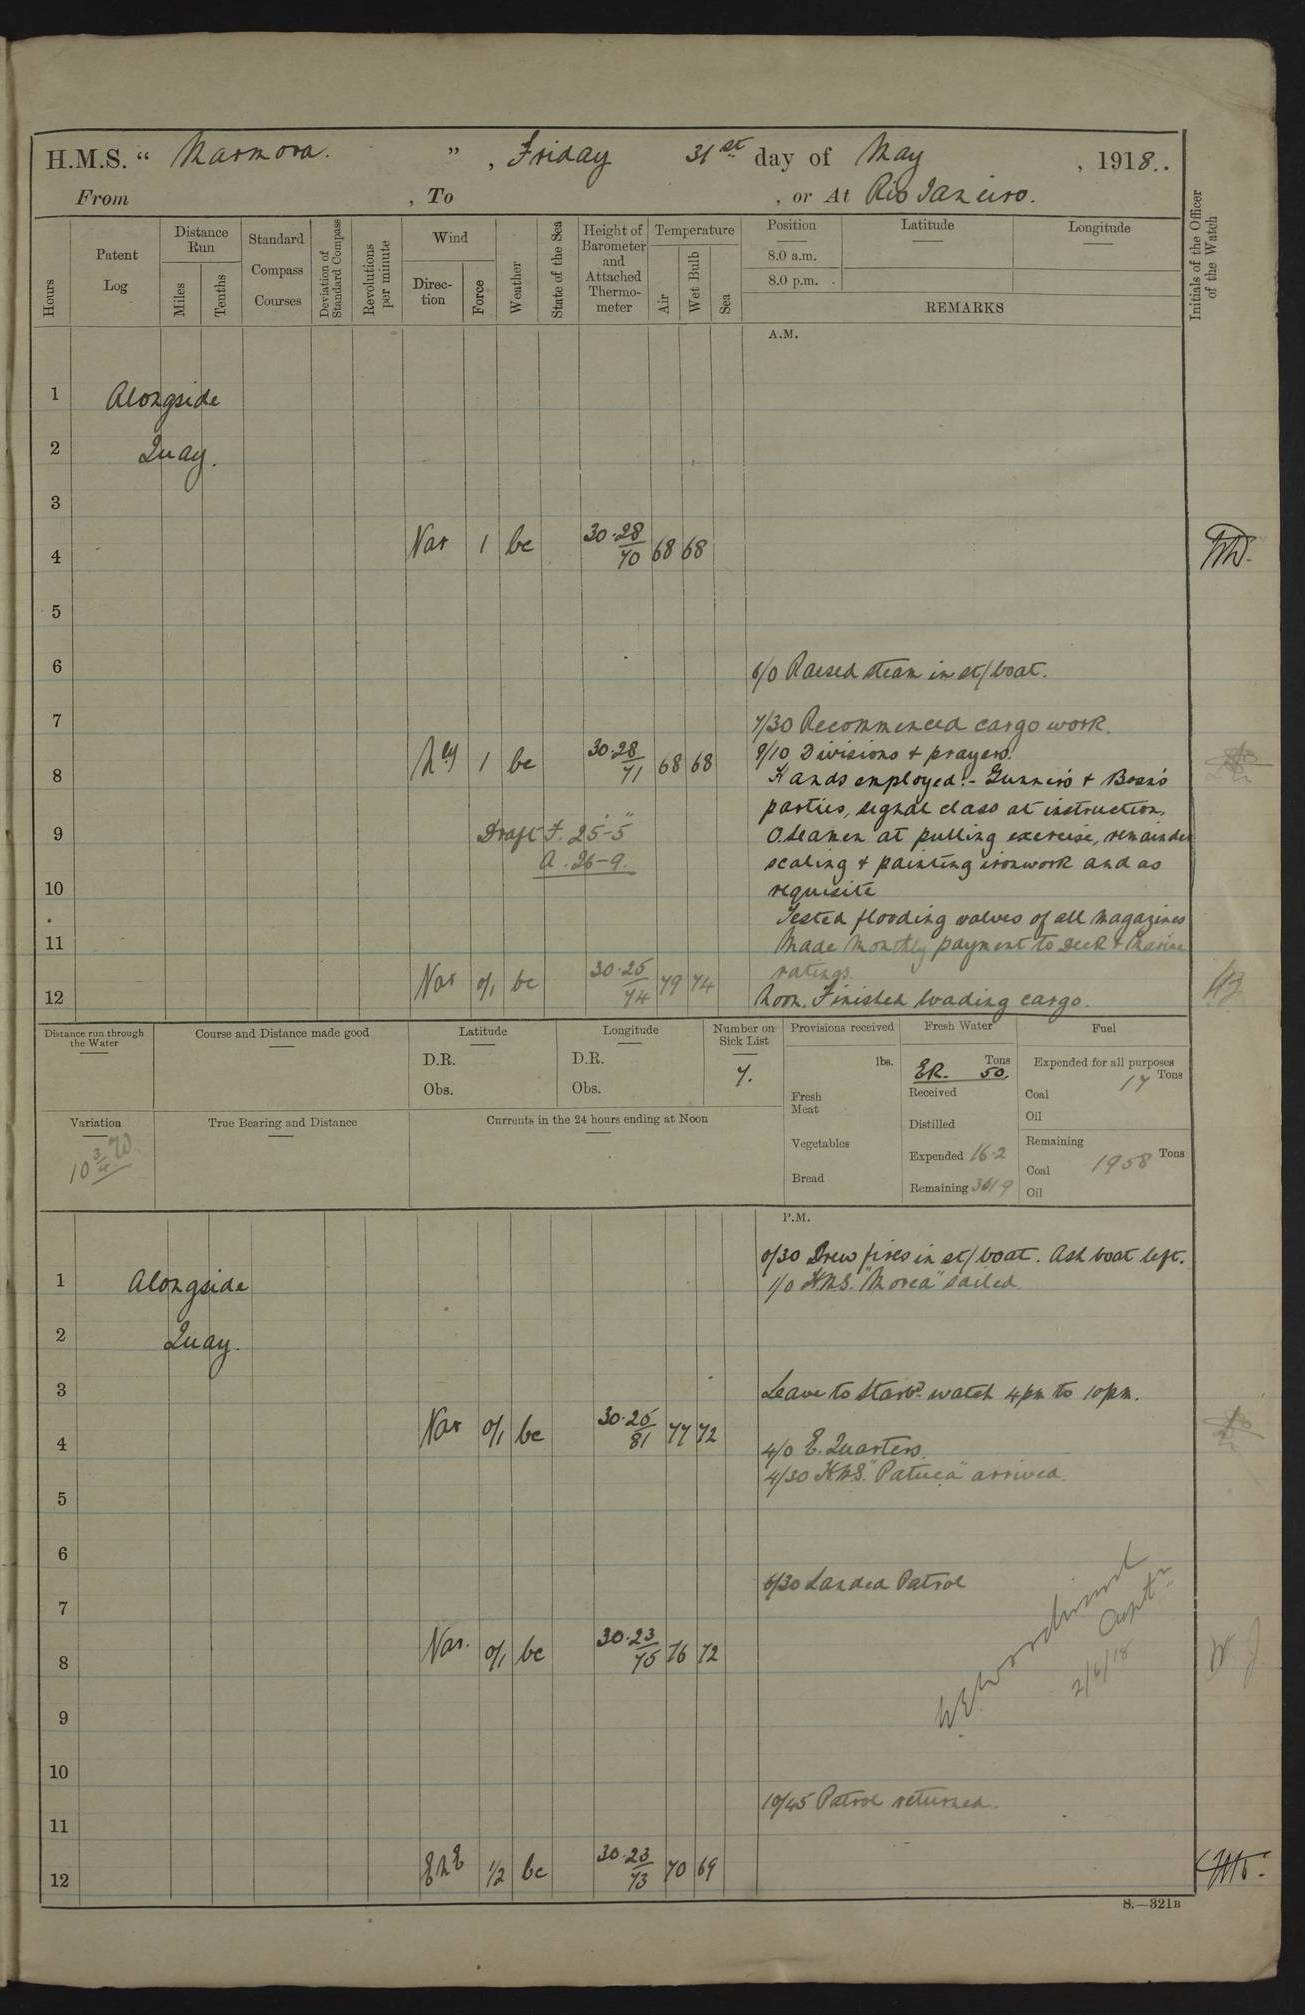 H.M.S. “ Marmora. ” , Friday 31st day of May , 1918..
From , To , or At Rio Janeiro.
Hours
Patent Log
Distance Run
Miles
Tenths
Standard Compass Courses
Deviation of Standard Compass
Revolutions per minute
Wind
Direction
Force
Weather
State of the Sea
Height of Barometer and Attached Thermometer
Temperature
Air
Wet Bulb
Sea
Position
8.0 a.m.
8.0 p.m.
Latitude
Longitude
REMARKS
Initials of the Officer of the Watch
A.M.
1 Alongside
2 Quay.
3
4 Var 1 bc 30.28/70 68 68
5
6 6/0 Raised steam in st/boat.
7 7/30 Recommenced cargo work.
9/10 Divisions & prayers.
8 1 bc 30.28/71 68 68
Hands employed:- Gunner's & Bosn's
parties, signal class at instruction,
9 Draft F. 25'-5"
O.Seamen at pulling exercise, remainder
A. 26-9.
scaling & painting ironwork and as
10 requisite
Tested flooding valves of all magazines
11 Made monthly payment to deck & Marine
ratings.
12 Var 0/1 bc 30.25/74 79 74
Noon. Finished loading cargo.
Distance run through the Water
Course and Distance made good
Latitude
D.R.
Obs.
Longitude
D.R.
Obs.
Number on Sick List
7.
Provisions received
lbs.
Fresh Meat
Vegetables
Bread
Fresh Water
Tons
ER. 50.
Received
Distilled
Expended 162
Remaining 3019
Fuel
Expended for all purposes
Tons
Coal 17
Oil
Remaining
Coal 1958 Tons
Oil
Variation
10 3/4 W
True Bearing and Distance
Currents in the 24 hours ending at Noon
P.M.
0/30 Drew fires in st/boat. Ash boat left.
1 Alongside 1/0 H.M.S. "Morea" sailed.
2 Quay.
3 Leave to Starbd watch 4pm to 10pm.
4 Var 0/1 bc 30.25/81 77 72
4/0 E. Quarters.
4/30 H.M.S. "Patuca" arrived.
5
6
6/30 Landed Patrol
7
8 Var. 0/1 bc 30.23/75 76 72
Captn
2/6/18
9
10
10/45 Patrol returned.
11
12 ENE 1/2 bc 30.23/73 70 69
S.—321B